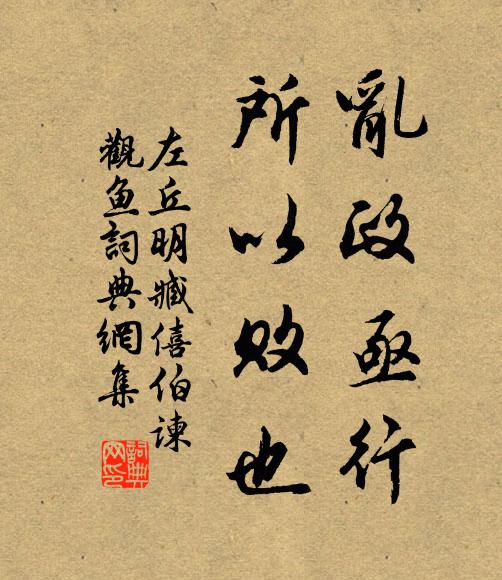 亂政亟行
所以败也
左丘明臧僖伯谏
觀鱼詞典網集
詞典
网印